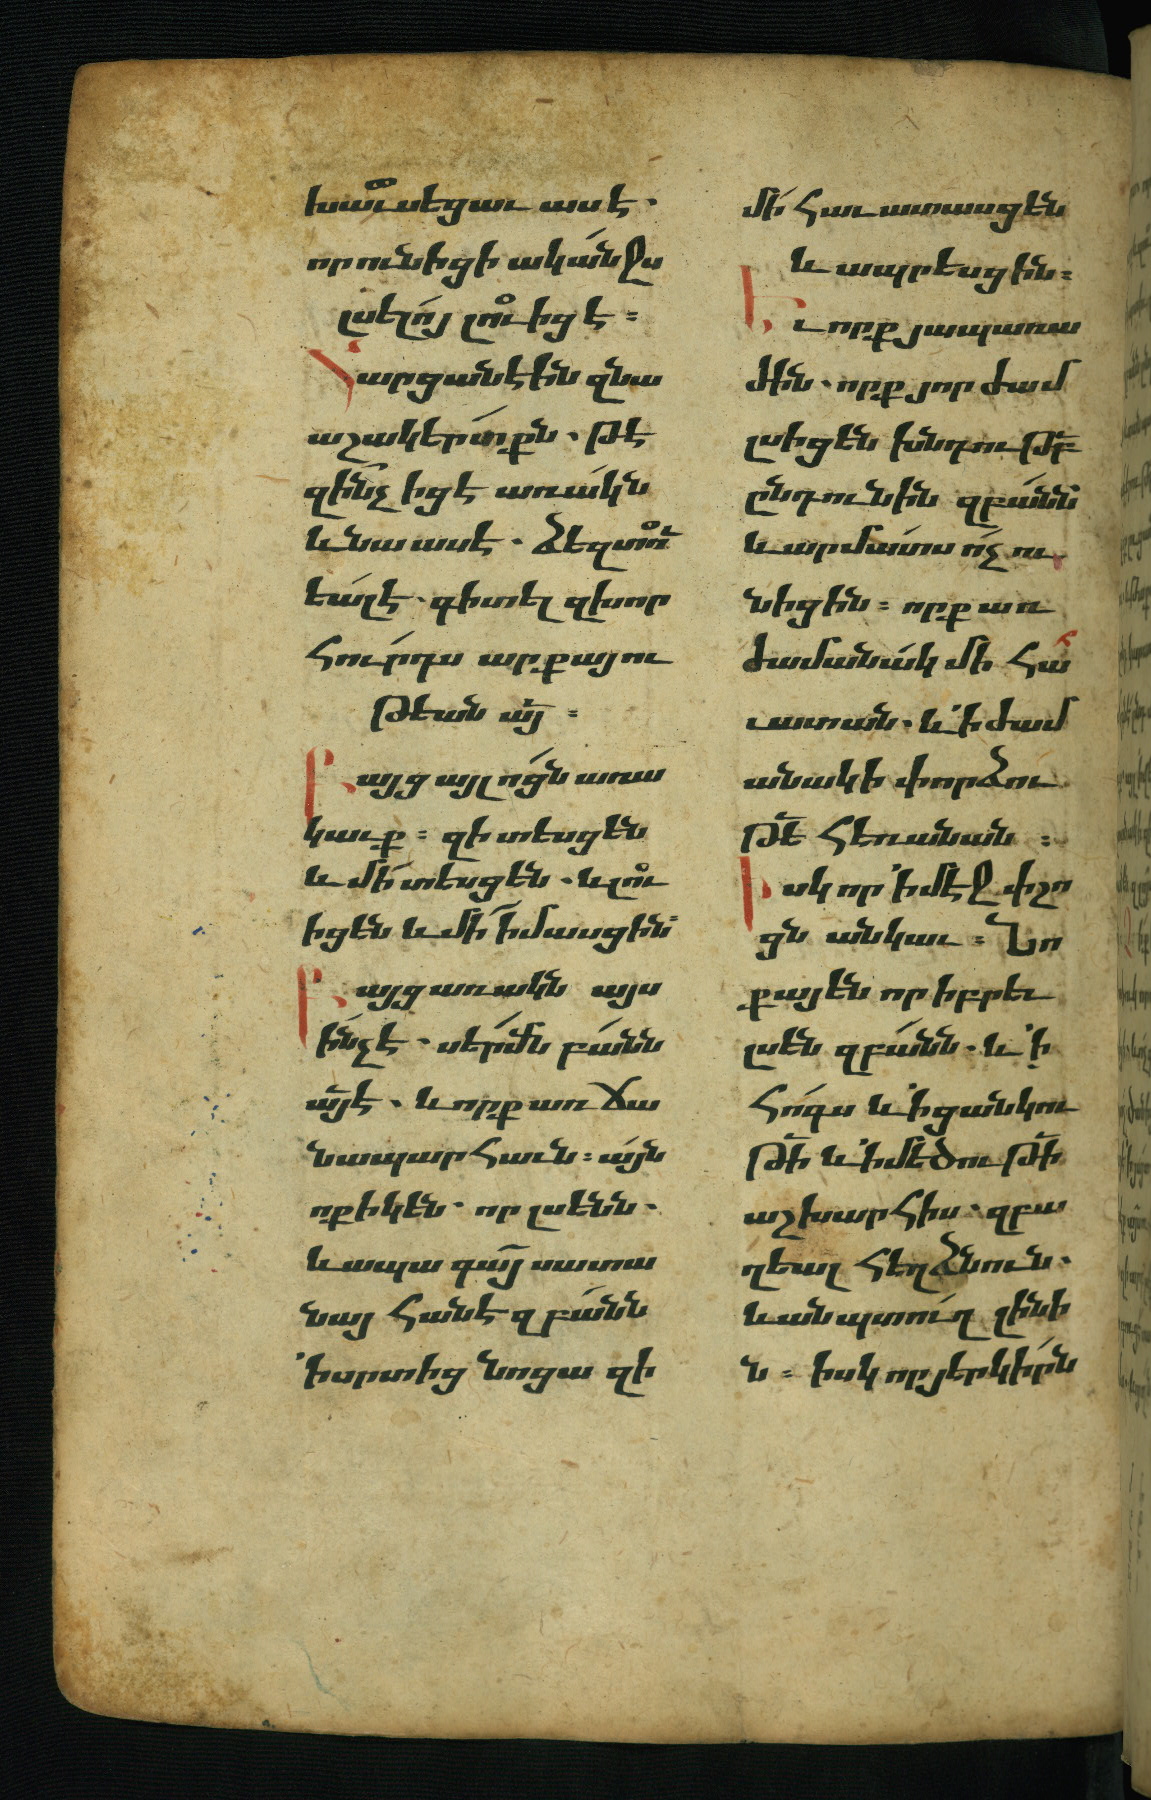 խաւսեցաւ ասէ․
որ ունիցի ականջս
լսելոյ լուիցէ։
Հարցանէին զնա
աշակերտքն․ թէ
զինչ իցէ առակն
և նա ասէ․ ձեզ տուե՟
եալ է․ գիտել զխոր
հուրդս արքայու
թեան ա՟յ։
Բայց այլոցն առա
կաւք։ զի տեսցեն
և մի տեսցեն․ և լու
իցեն և մի իմասցին։
Բայց առակն այս
ինչ է․ սերմն բանն
ա՟յ է․ և որք առ ճա
նապարհաւն։ այն
ոքիկ են․ որ լսենն․
և ապա գայ սատա
նայ հանէ զբանն
ի սրտից նոցա զի
մի հաւատասցեն
և ապրեսցին։
Եւ որք յապառա
ժին․ որք յորժամ
լսիցեն խնդութ՟բ
ընդունին զբանն
և արմատս ոչ ու
նիցին։ որք առ
ժամանակ մի հա
ւատան․ և ի ժամ
անակի փորձու
թ՟ե հեռանան։
Իսկ որ ի մէջ փշո
ցն անկաւ։ Նո
քա յեն որ իբրեւ
լսեն զբանն․ և ի
հոգս և ի ցանկու
թ՟ի և ի մեծութ՟ի
աշխարհիս․ զբա
ղեալ հեղձնուն․
և անպտուղ լինի
ն։ իսկ որ յերկիրն